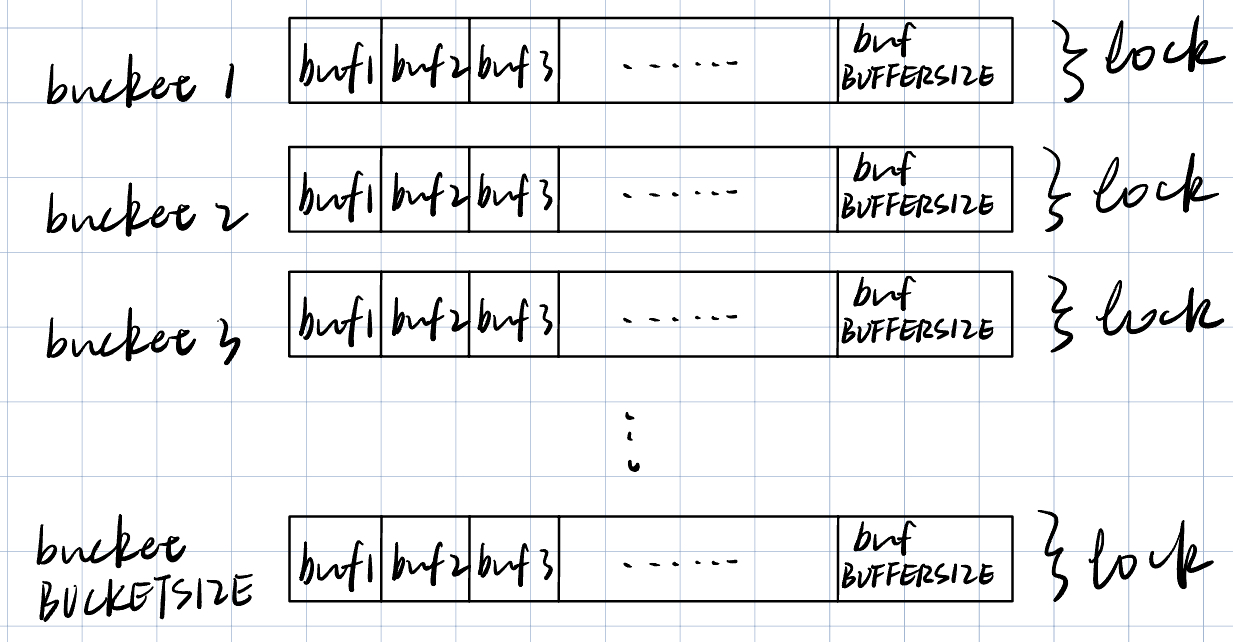 bucket 1 buf1 buf2 buf3 ...... buf BUFFERSIZE } lock
bucket 2 buf1 buf2 buf3 ...... buf BUFFERSIZE } lock
bucket 3 buf1 buf2 buf3 ...... buf BUFFERSIZE } lock
⋮
bucket BUCKETSIZE buf1 buf2 buf3 ...... buf BUFFERSIZE } lock